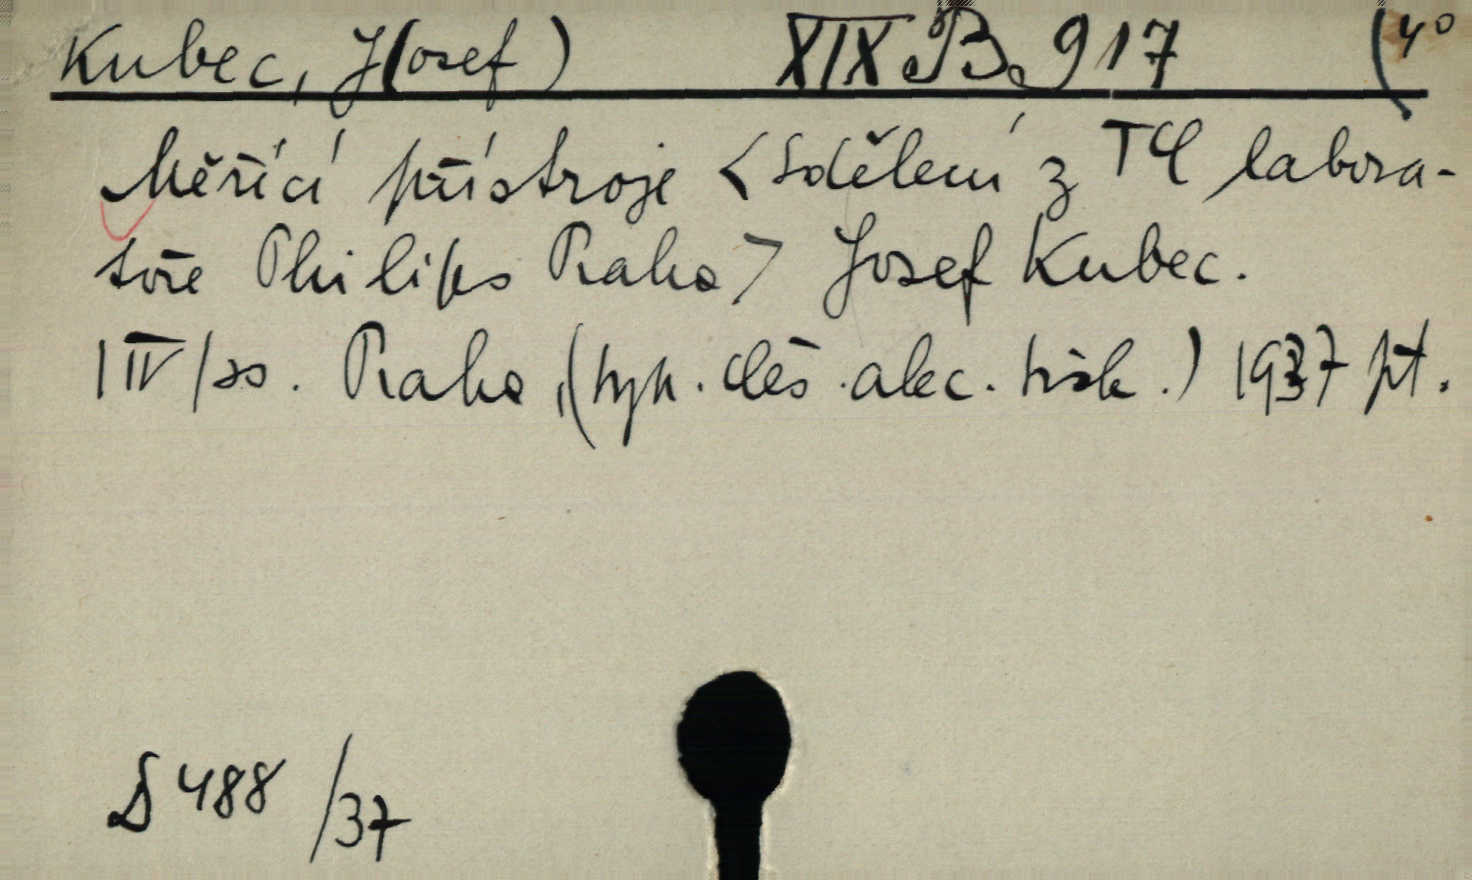 Kubec, J(osef) XIX B. 917 (4°
Měřící přístroje <Sdělení z TČ labora-
toře Philips Praha> Josef Kubec.
Praha, (typ. děs. alec. tisk.) 1937 př.
§ 488 /37